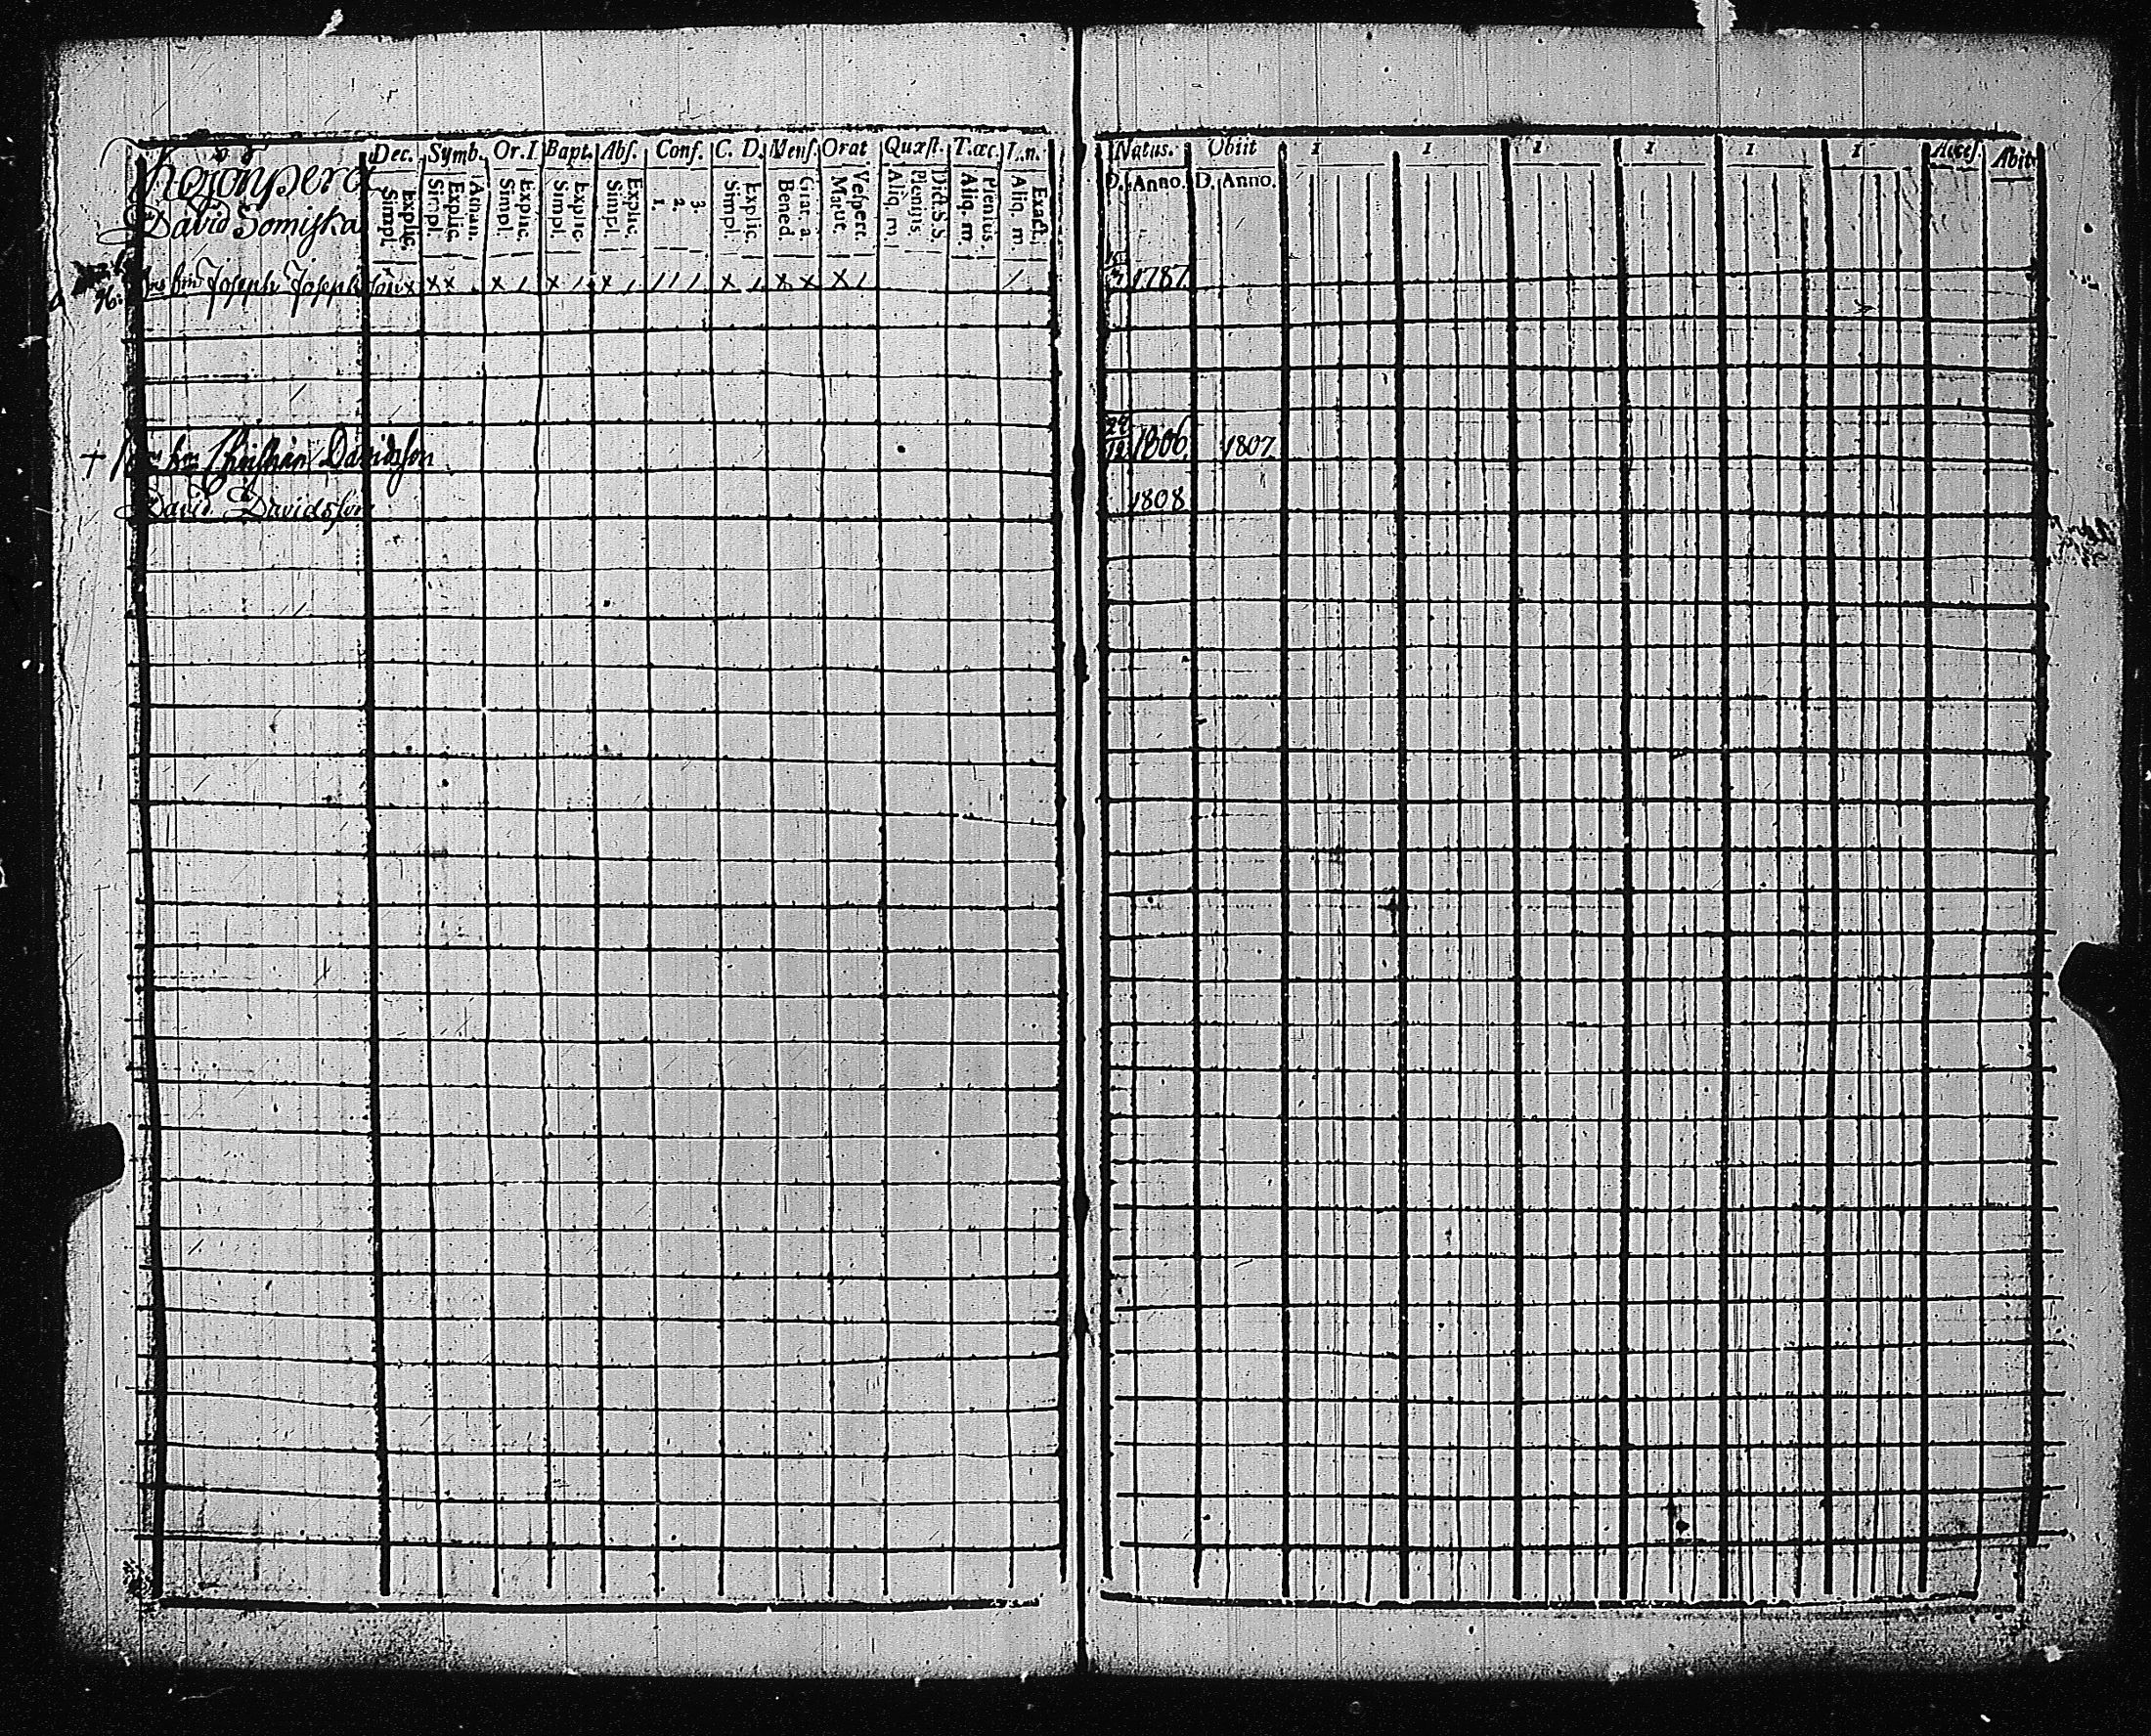 Kojonperä
Dec. Symb. Or. I Bapt. Abs. Conf. C. D. Mens. Orat Quæst. T.œc. L.n.
Simpl. Explic. Simpl. Explic. Atnan. Simpl. Explic. Simpl. Explic. Simpl. Explic. 1. 2. 3. Simpl. Explic. Bened. Grat. a. Matut. Vespert. Aliq. m. Plenius Dict. S. S. Aliq. m. Plenius. Aliq. m. Exact.
David Somiska
Joseph Josephsson x x x x / x / x / / / / x / x x x / /
+ Christian Davidsson
David Davidsson
Natus. Obiit 1 1 1 1 1 1 Access. Abit
D. Anno. D. Anno.
1787
24/12 1806 1807
1808